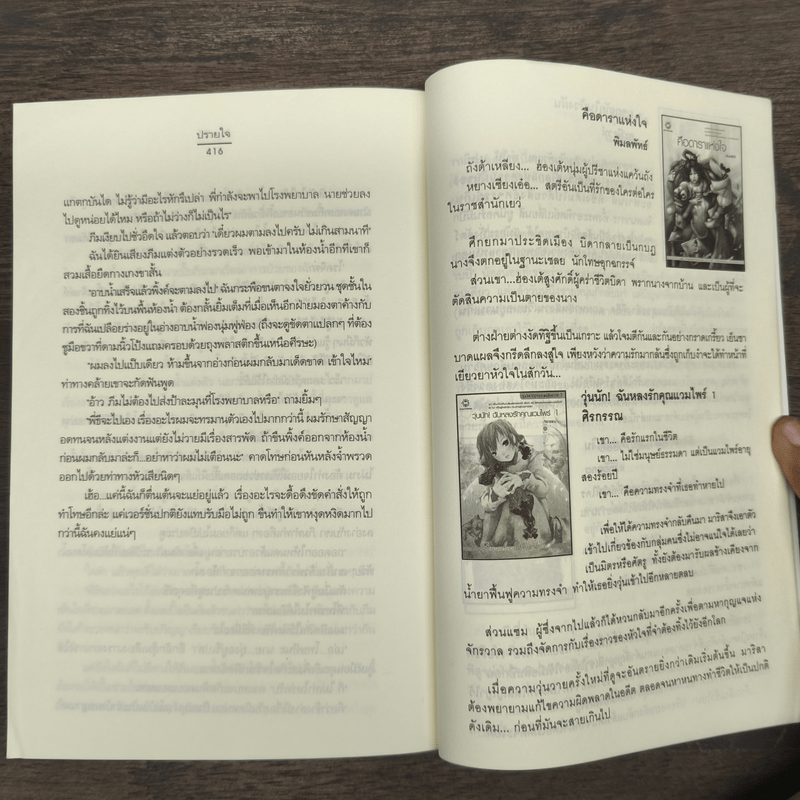 ปรายใจ
416
แก่ตกบันได ไม่รู้ว่ามีอะไรหักรึเปล่า พี่กำลังจะพาไปโรงพยาบาล นายช่วยลง
ไปดูหน่อยได้ไหม หรือถ้าไม่ว่างก็ไม่เป็นไร"
ภีมเงียบไปชั่วอึดใจ แล้วตอบว่า "เดี๋ยวผมตามลงไปครับ ไม่เกินสามนาที"
ฉันได้ยินเสียงภีมแต่งตัวอย่างรวดเร็ว พอเข้ามาในห้องน้ำอีกทีเขาก็
สวมเสื้อยืดกางเกงขาสั้น
"อาบน้ำเสร็จแล้วพิงค์จะตามลงไป" ฉันกระพือขนตาจงใจยั่วยวน ชุดชั้นใน
สองชิ้นถูกทิ้งไว้บนพื้นห้องน้ำ ต้องกลั้นยิ้มเต็มที่เมื่อเห็นอีกฝ่ายมองตาค้างกับ
การที่ฉันเปลือยร่างอยู่ในอ่างอาบน้ำฟองนุ่มฟูฟ่อง (ถึงจะดูขัดตาแปลกๆ ที่ต้อง
ชูมือขวาที่ดามนิ้วโป้งแถมครอบด้วยถุงพลาสติกขึ้นเหนือศีรษะ)
"ผมลงไปแป๊บเดียว ห้ามขึ้นจากอ่างก่อนผมกลับมาเด็ดขาด เข้าใจไหม"
ท่าทางคล้ายเขาจะกัดฟันพูด
"อ้าว ภีมไม่ต้องไปส่งป้าละมุนที่โรงพยาบาลหรือ" ถามยิ้มๆ
"พี่ธีจะไปเอง เรื่องอะไรผมจะทรมานตัวเองไปมากกว่านี้ ผมรักษาสัญญา
อดทนจนหลังแต่งงานแต่ยังไม่วายมีเรื่องสารพัด ถ้าขืนพิงค์ออกจากห้องน้ำ
ก่อนผมกลับมาล่ะก็...อย่าหาว่าผมไม่เตือนนะ" คาดโทษก่อนหันหลังจ้ำพรวด
ออกไปด้วยท่าทางหัวเสียนิดๆ
เฮ้อ...แค่นี้ฉันก็ตื่นเต้นจะแย่อยู่แล้ว เรื่องอะไรจะดื้อดึงขัดคำสั่งให้ถูก
ทำโทษอีกล่ะ แค่เวอร์ชั่นปกติยังแทบรับมือไม่ถูก ขืนทำให้เขาหงุดหงิดมากไป
กว่านี้ฉันคงแย่แน่ๆ
คือดาราแห่งใจ
พิมลพัทธ์
ถังต้าเหลียง... ฮ่องเต้หนุ่มผู้ปรีชาแห่งแคว้นถัง
หยางเซียงเอ๋อ... สตรีอันเป็นที่รักของใครต่อใคร
ในราชสำนักเยว่
ศึกยกมาประชิดเมือง บิดากลายเป็นกบฏ
นางจึงตกอยู่ในฐานะเชลย นักโทษอุกฉกรรจ์
ส่วนเขา...ฮ่องเต้สูงศักดิ์ผู้คร่าชีวิตบิดา พรากนางจากบ้าน และเป็นผู้ที่จะ
ตัดสินความเป็นตายของนาง
ต่างฝ่ายต่างงัดทิฐิขึ้นเป็นเกราะ แล้วโจมตีกันและกันอย่างกราดเกรี้ยว เย็นชา
บาดแผลจึงกรีดลึกลงสู่ใจ เพียงหวังว่าความรักมากล้นซึ่งถูกเก็บงำจะได้ทำหน้าที่
เยียวยาหัวใจในสักวัน...
คือดาราแห่งใจ
วุ่นนัก! ฉันหลงรักคุณแวมไพร์ 1
วุ่นนัก! ฉันหลงรักคุณแวมไพร์ 1
ศิรกรรณ
เขา... คือรักแรกในชีวิต
เขา... ไม่ใช่มนุษย์ธรรมดา แต่เป็นแวมไพร์อายุ
สองร้อยปี
เขา... คือความทรงจำที่เธอทำหายไป
เพื่อให้ได้ความทรงจำกลับคืนมา มาริสาจึงเอาตัว
เข้าไปเกี่ยวข้องกับกลุ่มคนซึ่งไม่อาจแน่ใจได้เลยว่า
เป็นมิตรหรือศัตรู ทั้งยังต้องมารับผลข้างเคียงจาก
น้ำยาฟื้นฟูความทรงจำ ทำให้เธอยิ่งวุ่นเข้าไปอีกหลายตลบ
ส่วนแซม ผู้ซึ่งจากไปแล้วก็ได้หวนกลับมาอีกครั้งเพื่อตามหากุญแจแห่ง
จักรวาล รวมถึงจัดการกับเรื่องราวของหัวใจที่จำต้องทิ้งไว้ยังอีกโลก
เมื่อความวุ่นวายครั้งใหม่ที่ดูจะอันตรายยิ่งกว่าเดิมเริ่มต้นขึ้น มาริสา
ต้องพยายามแก้ไขความผิดพลาดในอดีต ตลอดจนหาหนทางทำชีวิตให้เป็นปกติ
ดังเดิม... ก่อนที่มันจะสายเกินไป